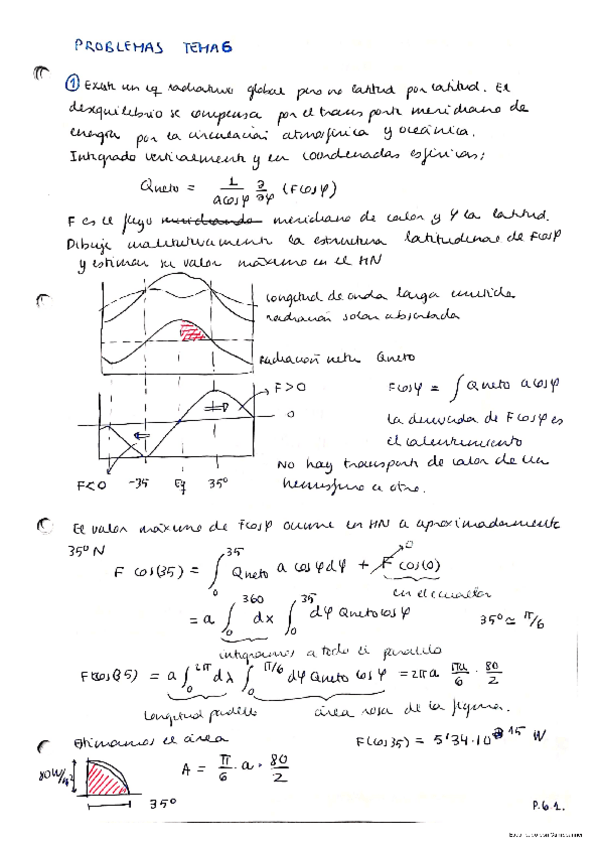 PROBLEMAS TEMA 6
① Existe un eq radiativo global pero no latitud por latitud. El
desequilibrio se compensa por el transporte meridiano de
energía por la circulación atmosférica y oceánica.
Integrado verticalmente y en coordenadas esféricas:
Qneto = 1/(a cos φ) ∂/∂φ (F cos φ)
F es el flujo meridiano de calor y φ la latitud.
Dibuja cualitativamente la estructura latitudinal de F cos φ
y estimar su valor máximo en el HN
Longitud de onda larga emitida
radiación solar absorbida
Radiación neta Qneto
F>0
F cos φ = ∫ Qneto a cos φ
0
la derivada de F cos φ es
el calentamiento
No hay transporte de calor de un
hemisferio a otro.
F<0 -35 Eq 35°
El valor máximo de F cos φ ocurre en HN a aproximadamente
35° N
F cos(35) = ∫₀³⁵ Qneto a cos φ dφ + F cos(0) 0
en el ecuador
= a ∫₀³⁶⁰ dx ∫₀³⁵ dφ Qneto cos φ 35° ≃ π/6
integramos a todo el paralelo
F cos(35) = a ∫₀²π dλ ∫₀π/6 dφ Qneto cos φ = 2πa πa/6 · 80/2
longitud paralelo área rosa de la figura.
Estimamos el área
F(cos 35) = 5'34·10¹⁵ W
80 W/m²
A = π/6 · a · 80/2
35°
P.6.1.